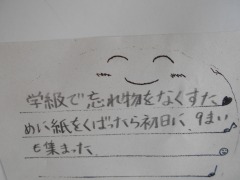 学級で忘れ物をなくすた
めに紙をくばったら初日に、9まい
も集まった